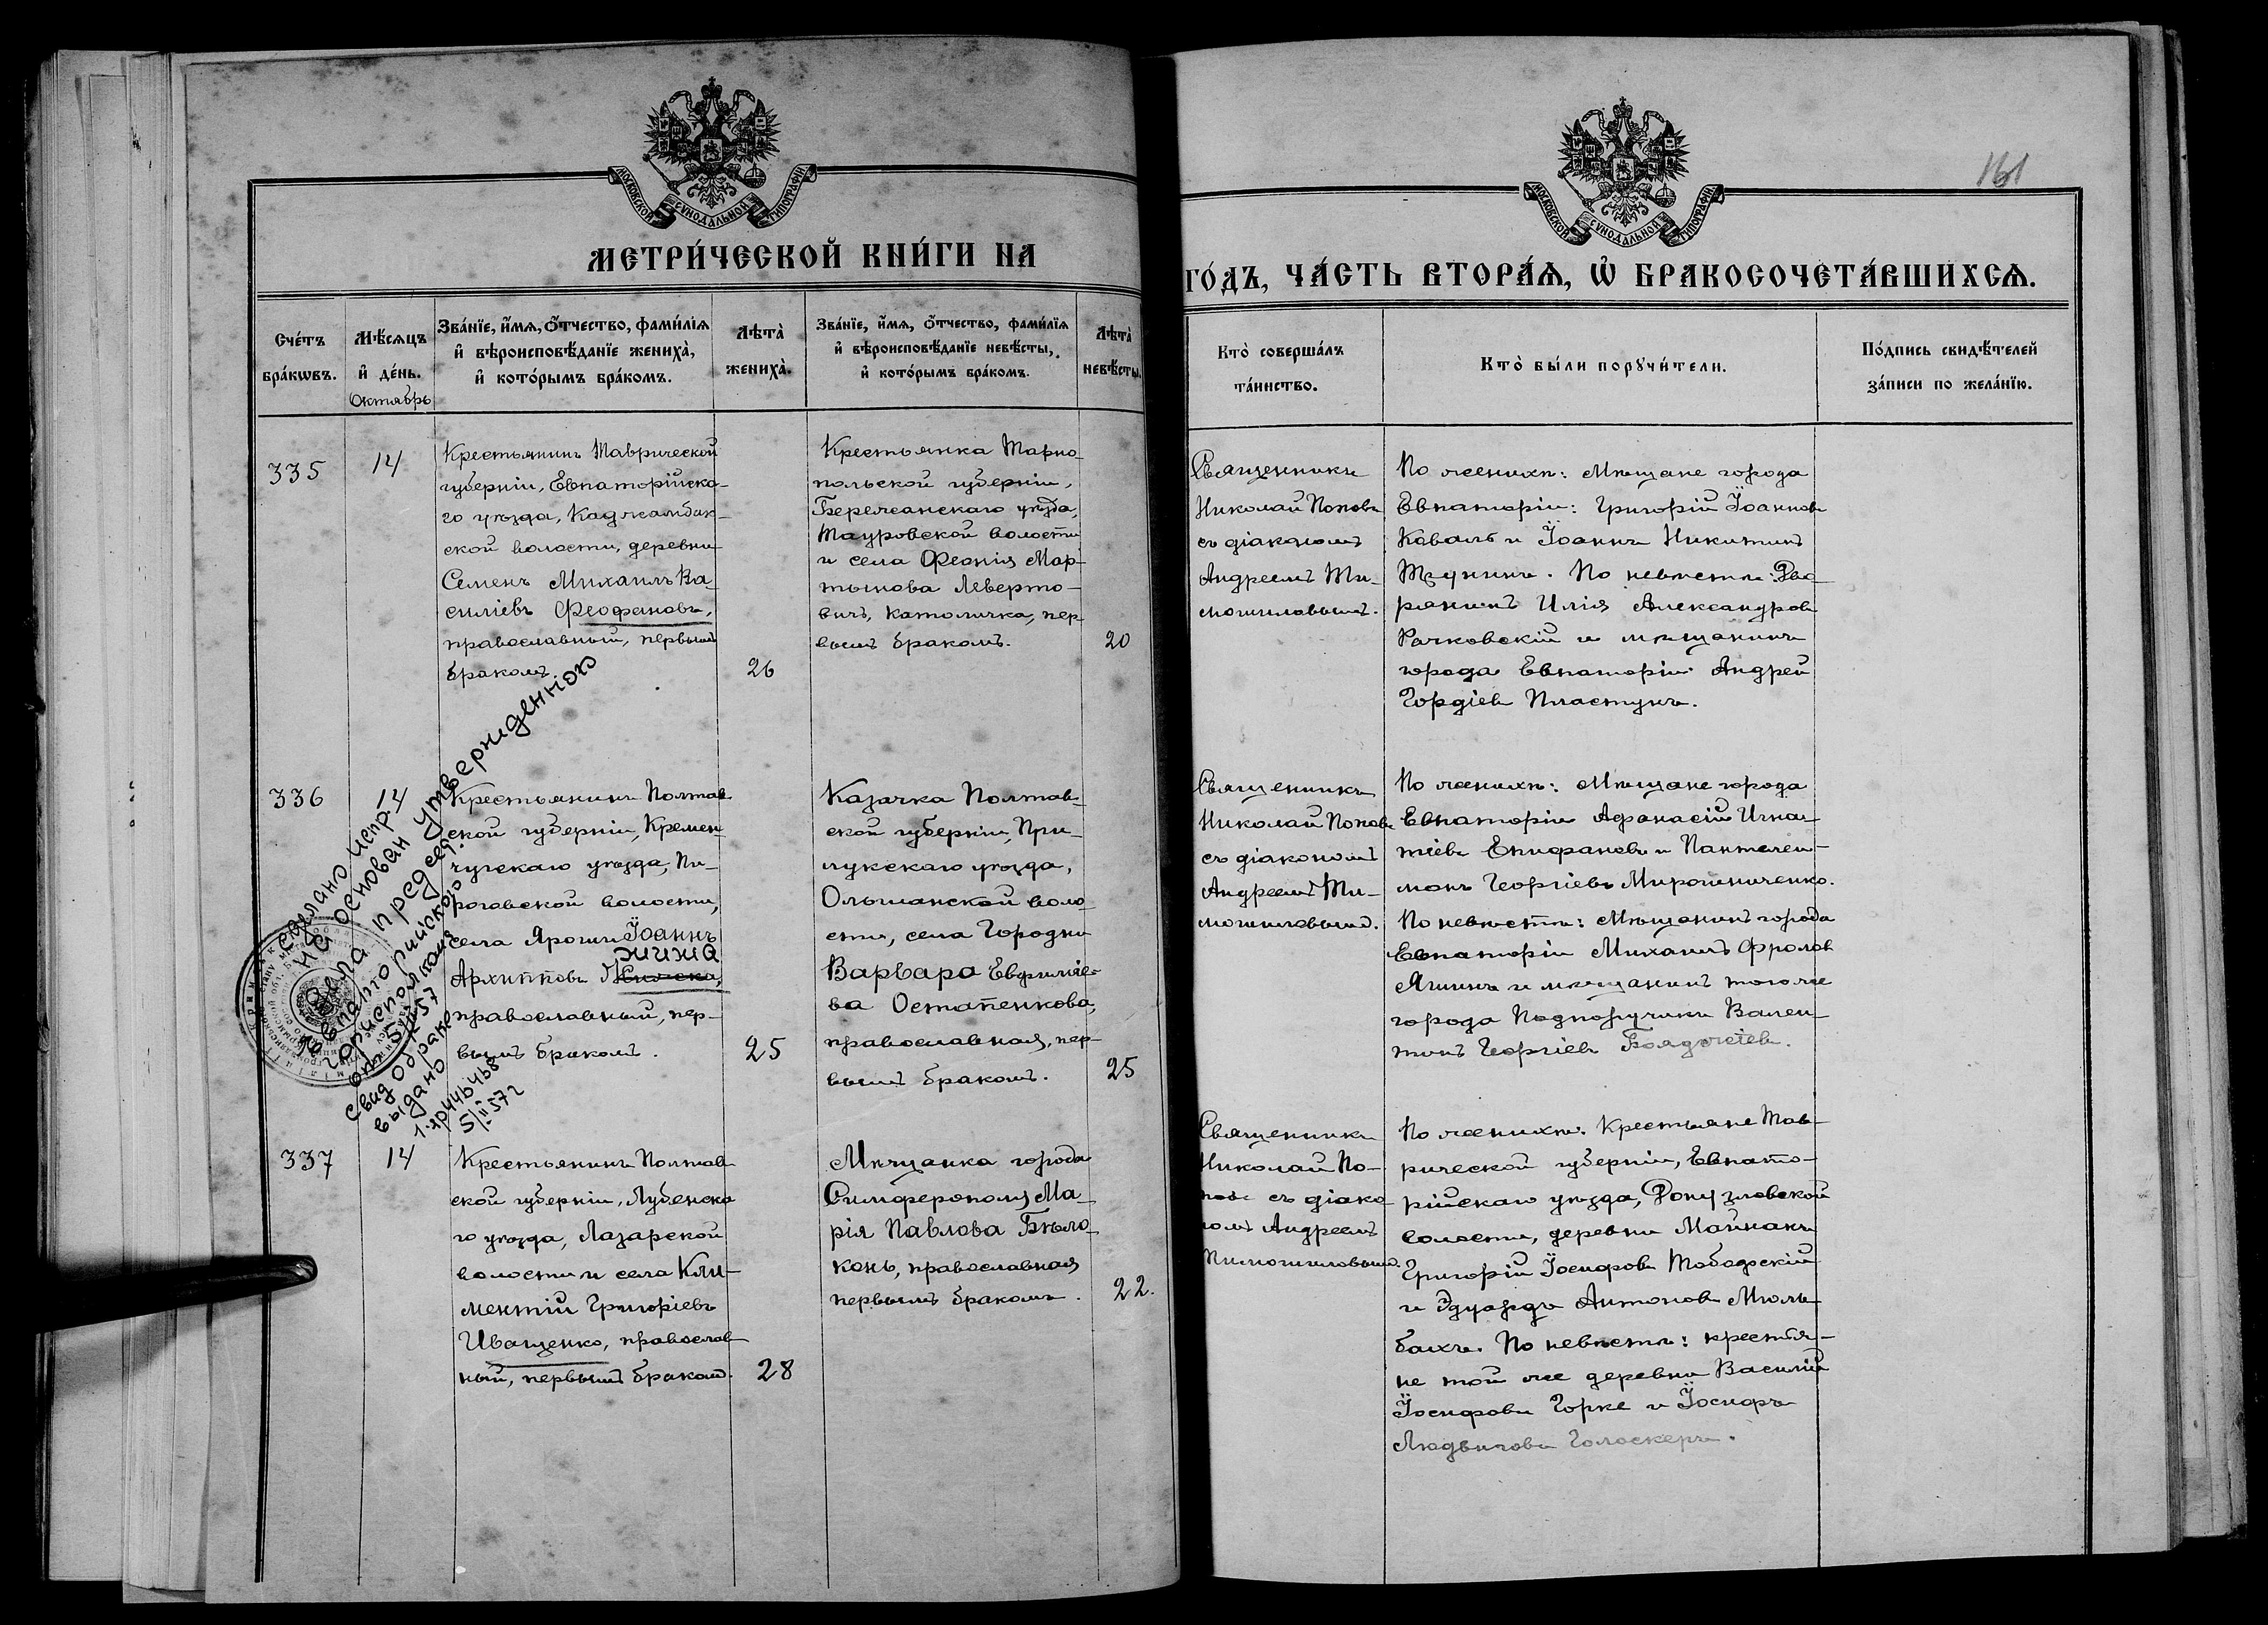 161
МОСКОВСКОЙ СѴНОДАЛЬНОЙ ТИПОГРАФІИ
МОСКОВСКОЙ СѴНОДАЛЬНОЙ ТИПОГРАФІИ
МЕТРИ́ЧЕСКОЙ КНИ́ГИ НА
ГО́ДЪ, ЧА́СТЬ ВТОРА́Ѧ, Ѡ҆ БРАКОСОЧЕТА́ВШИХСѦ.
Сче́тъ
бра́кѡвъ.
Мѣ́сѧцъ
и҆ де́нь.
Октябрь
Зва́нїе, и҆́мѧ, ѻ҆́тчество, фами́лїѧ
и҆ вѣроисповѣ́данїе жениха̀,
и҆ кото́рымъ бра́комъ.
Лѣта̀
жениха̀.
Зва́нїе, и҆́мѧ, ѻ҆́тчество, фами́лїѧ
и҆ вѣроисповѣ́данїе невѣ́сты,
и҆ кото́рымъ бра́комъ.
Лѣта̀
невѣ́сты.
Кто̀ соверша́лъ
та́инство.
Кто̀ бы́ли порꙋчи́тели.
По́дпись свидѣ́телей
за́писи по жела́нїю.
335
14
Крестьянинъ Таврической
губерніи, Евпаторійска-
го уѣзда, Каджамбак-
ской волости, деревни
Семенъ Михаилъ Ва-
силіевъ Феофановъ,
православный, первымъ
бракомъ
26
Крестьянка Тарно-
польской губерніи,
Бережанскаго уѣзда,
Тауровской волости
и села Феонія Мар-
тынова Леверто-
вичъ, католичка, пер
вымъ бракомъ.
20
Священникъ
Николай Поповъ
съ діакономъ
Андреемъ Ти-
мошиловымъ.
По женихѣ: Мѣщане города
Евпаторіи: Григорій Іоанновъ
Коваль и Іоаннъ Никитинъ
Трунинъ. По невѣстѣ: Дво-
рянинъ Илія Александровъ
Рачковскій и мѣщанинъ
города Евпаторіи Андрей
Гордіевъ Пластунъ.
336
14
Крестьянинъ Полтав
ской губерніи, Кремен-
чугскаго уѣзда, Пи-
роговской волости,
села Ярошки Іоаннъ
жижа
Архиповъ
православный, пер-
вымъ бракомъ.
25
Казачка Полтав-
ской губерніи, При-
лукскаго уѣзда,
Ольшанской воло-
сти, села Городни
Варвара Евфиміе-
ва Остапенкова,
православная, пер-
вымъ бракомъ.
25
Священникъ
Николай Поповъ
съ діакономъ
Андреемъ Ти-
мошиловымъ.
По женихѣ: Мѣщане города
Евпаторіи Афанасій Игна-
тіевъ Епифановъ и Пантелей-
монъ Георгіевъ Мирошниченко.
По невѣстѣ: Мѣщанинъ города
Евпаторіи Михаилъ Фроловъ
Яшинъ и мѣщанинъ того же
города Подпоручикъ Вален-
тинъ Георгіевъ
сделано испр.
на основан утвержденного
председ.
Евпаторийского
горисполкома
от 5/II 57
свид о браке
выдано
5/II 57 г
337
14
Крестьянинъ Полтав
ской губерніи, Лубенска
го уѣзда, Лазарской
волости и села Кли-
ментій Григоріевъ
Иващенко, православ-
ный, первымъ бракомъ.
28
Мѣщанка города
Симферополя Ма-
рія Павлова Бѣло-
конь, православная
первымъ бракомъ.
22.
Священникъ
Николай По-
повъ съ діако
номъ Андреемъ
Тимошиловымъ.
По женихѣ: Крестьяне Тав-
рической губерніи, Евпато-
рійскаго уѣзда, Донузлавской
волости, деревни Майнакъ
Григорій Іосифовъ Тободскій
и Эдуардъ Антоновъ Мюль-
бахъ. По невѣстѣ: крестья-
не той же деревни Василій
Іосифовъ Горке и Іосифъ
Людвиговъ Голоскеръ.